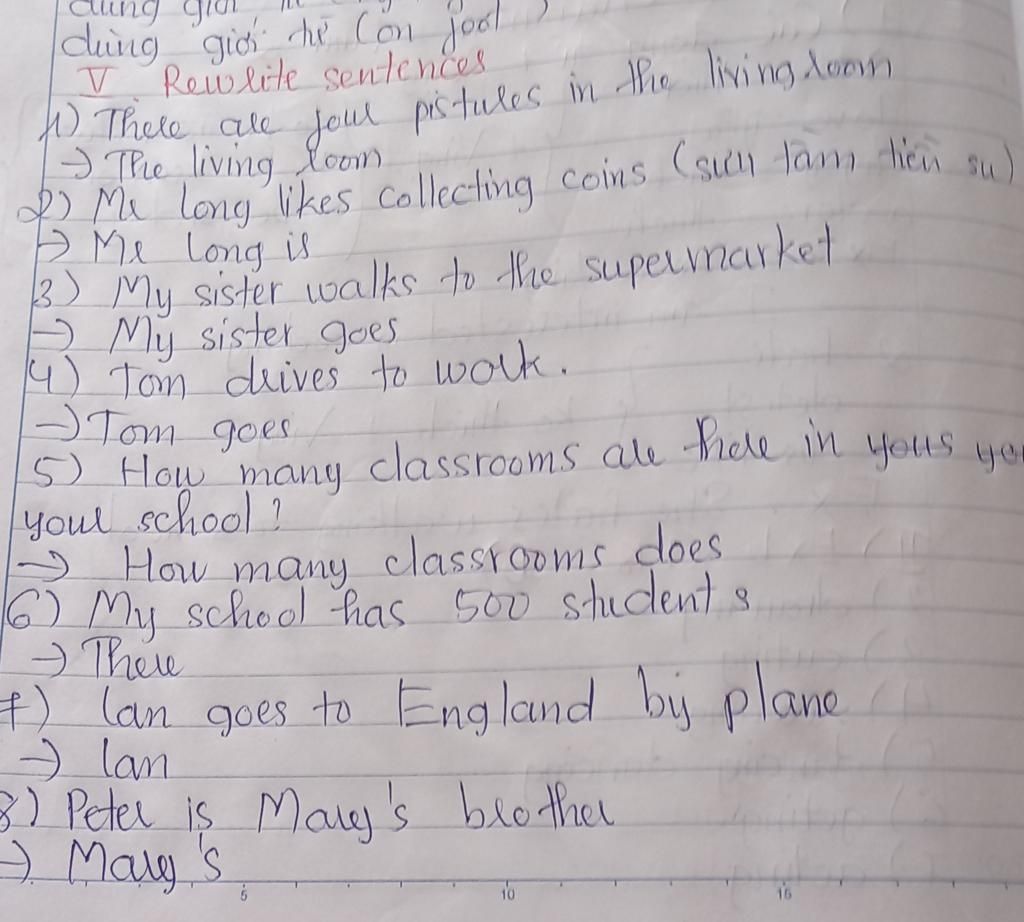 dùng giới
dùng giới từ (on foot)
V. Rewrite sentences
1) There are four pistures in the living room
→ The living room
2) Mr long likes collecting coins (sưu tầm tiền xu)
→ Mr long is
3) My sister walks to the supermarket
→ My sister goes
4) Tom drives to work.
→ Tom goes
5) How many classrooms are there in yours
your school?
→ How many classrooms does
6) My school has 500 students
→ There
7) lan goes to England by plane
→ lan
8) Peter is Mary's brother
→ Mary's
5 10 15